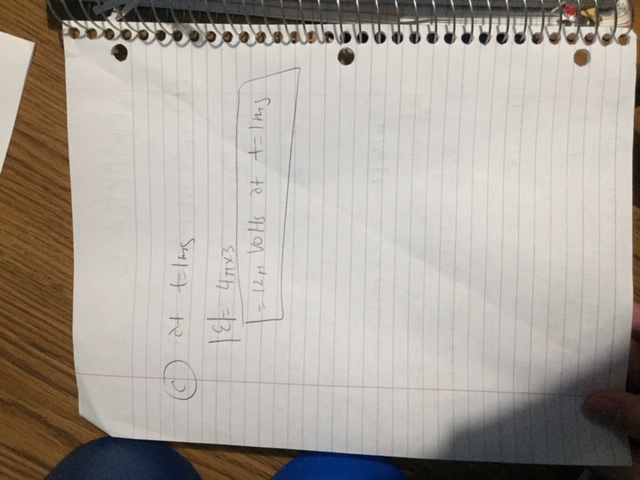 (C) at t=1ms
|ε|= 4π×3
= 12π Volts at t=1ms